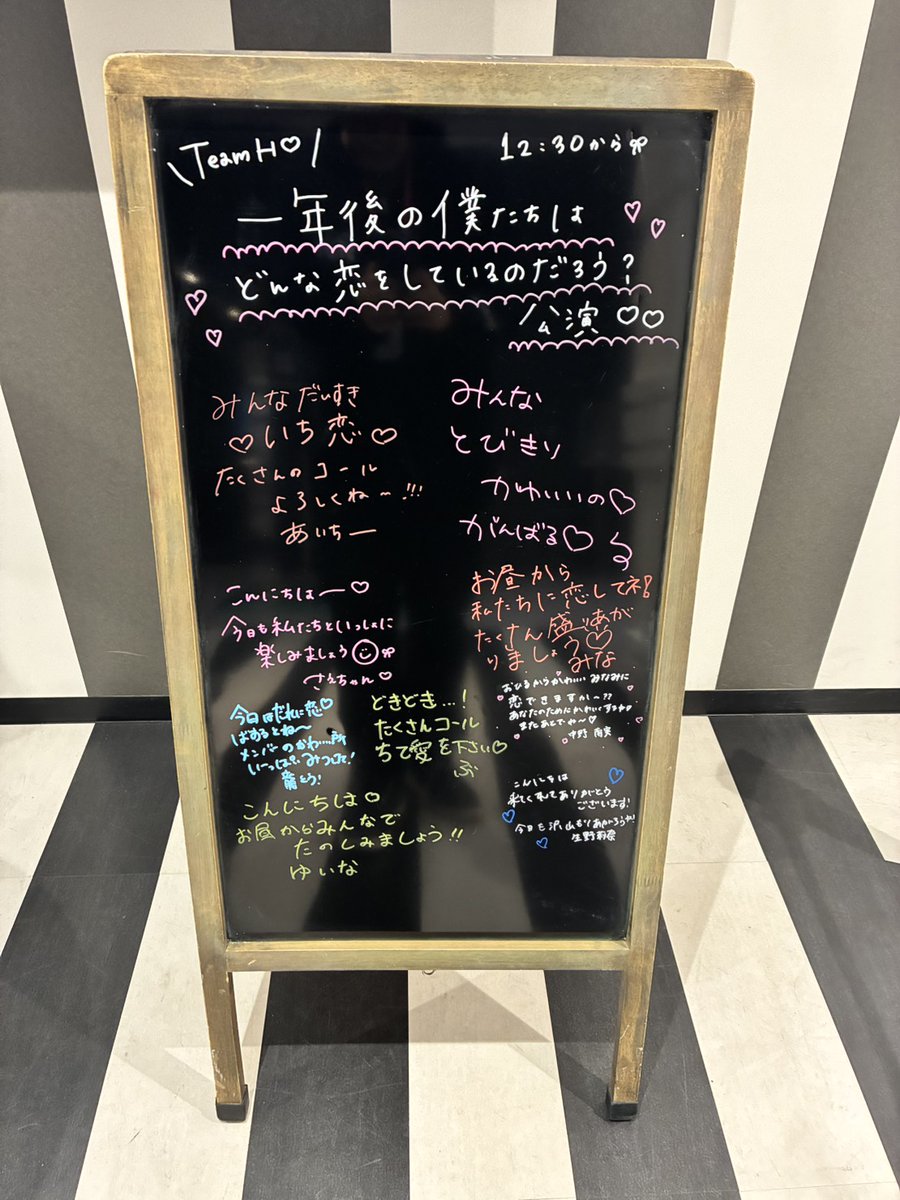 \TeamH♡/
12:30から
一年後の僕たちは
どんな恋をしているのだろう?
公演♡♡
みんなだいすき
♡いち恋♡
たくさんのコール
よろしくね〜!!!
あいちー
みんな
とびきり
かわいいの♡
がんばる♡
る
こんにちはー♡
今日も私たちといっしょに
楽しみましょう
さえちゃん♡
お昼から
私たちに恋してネ!
たくさん盛りあが
りましょう♡
みな
今日はだれに恋♡
するとね〜
メンバーのかわ…所
いーっぱいみつけて!
どきどき…!
たくさんコール
ちて愛を下さい♡
ぶ
おひるからかわいい みなみに
恋できますか〜??
あなたのためにかわいくするね
またあとでね〜♡
中野 南実
こんにちは♡
お昼からみんなで
たのしみましょう!!
ゆいな
こんにちは
来てくれてありがとう
ございます!
今日も沢山もりあがろうね!
生野莉奈